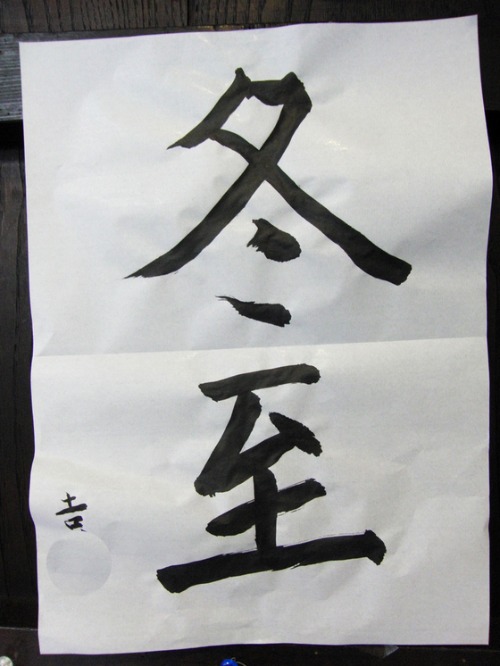 冬至
吉